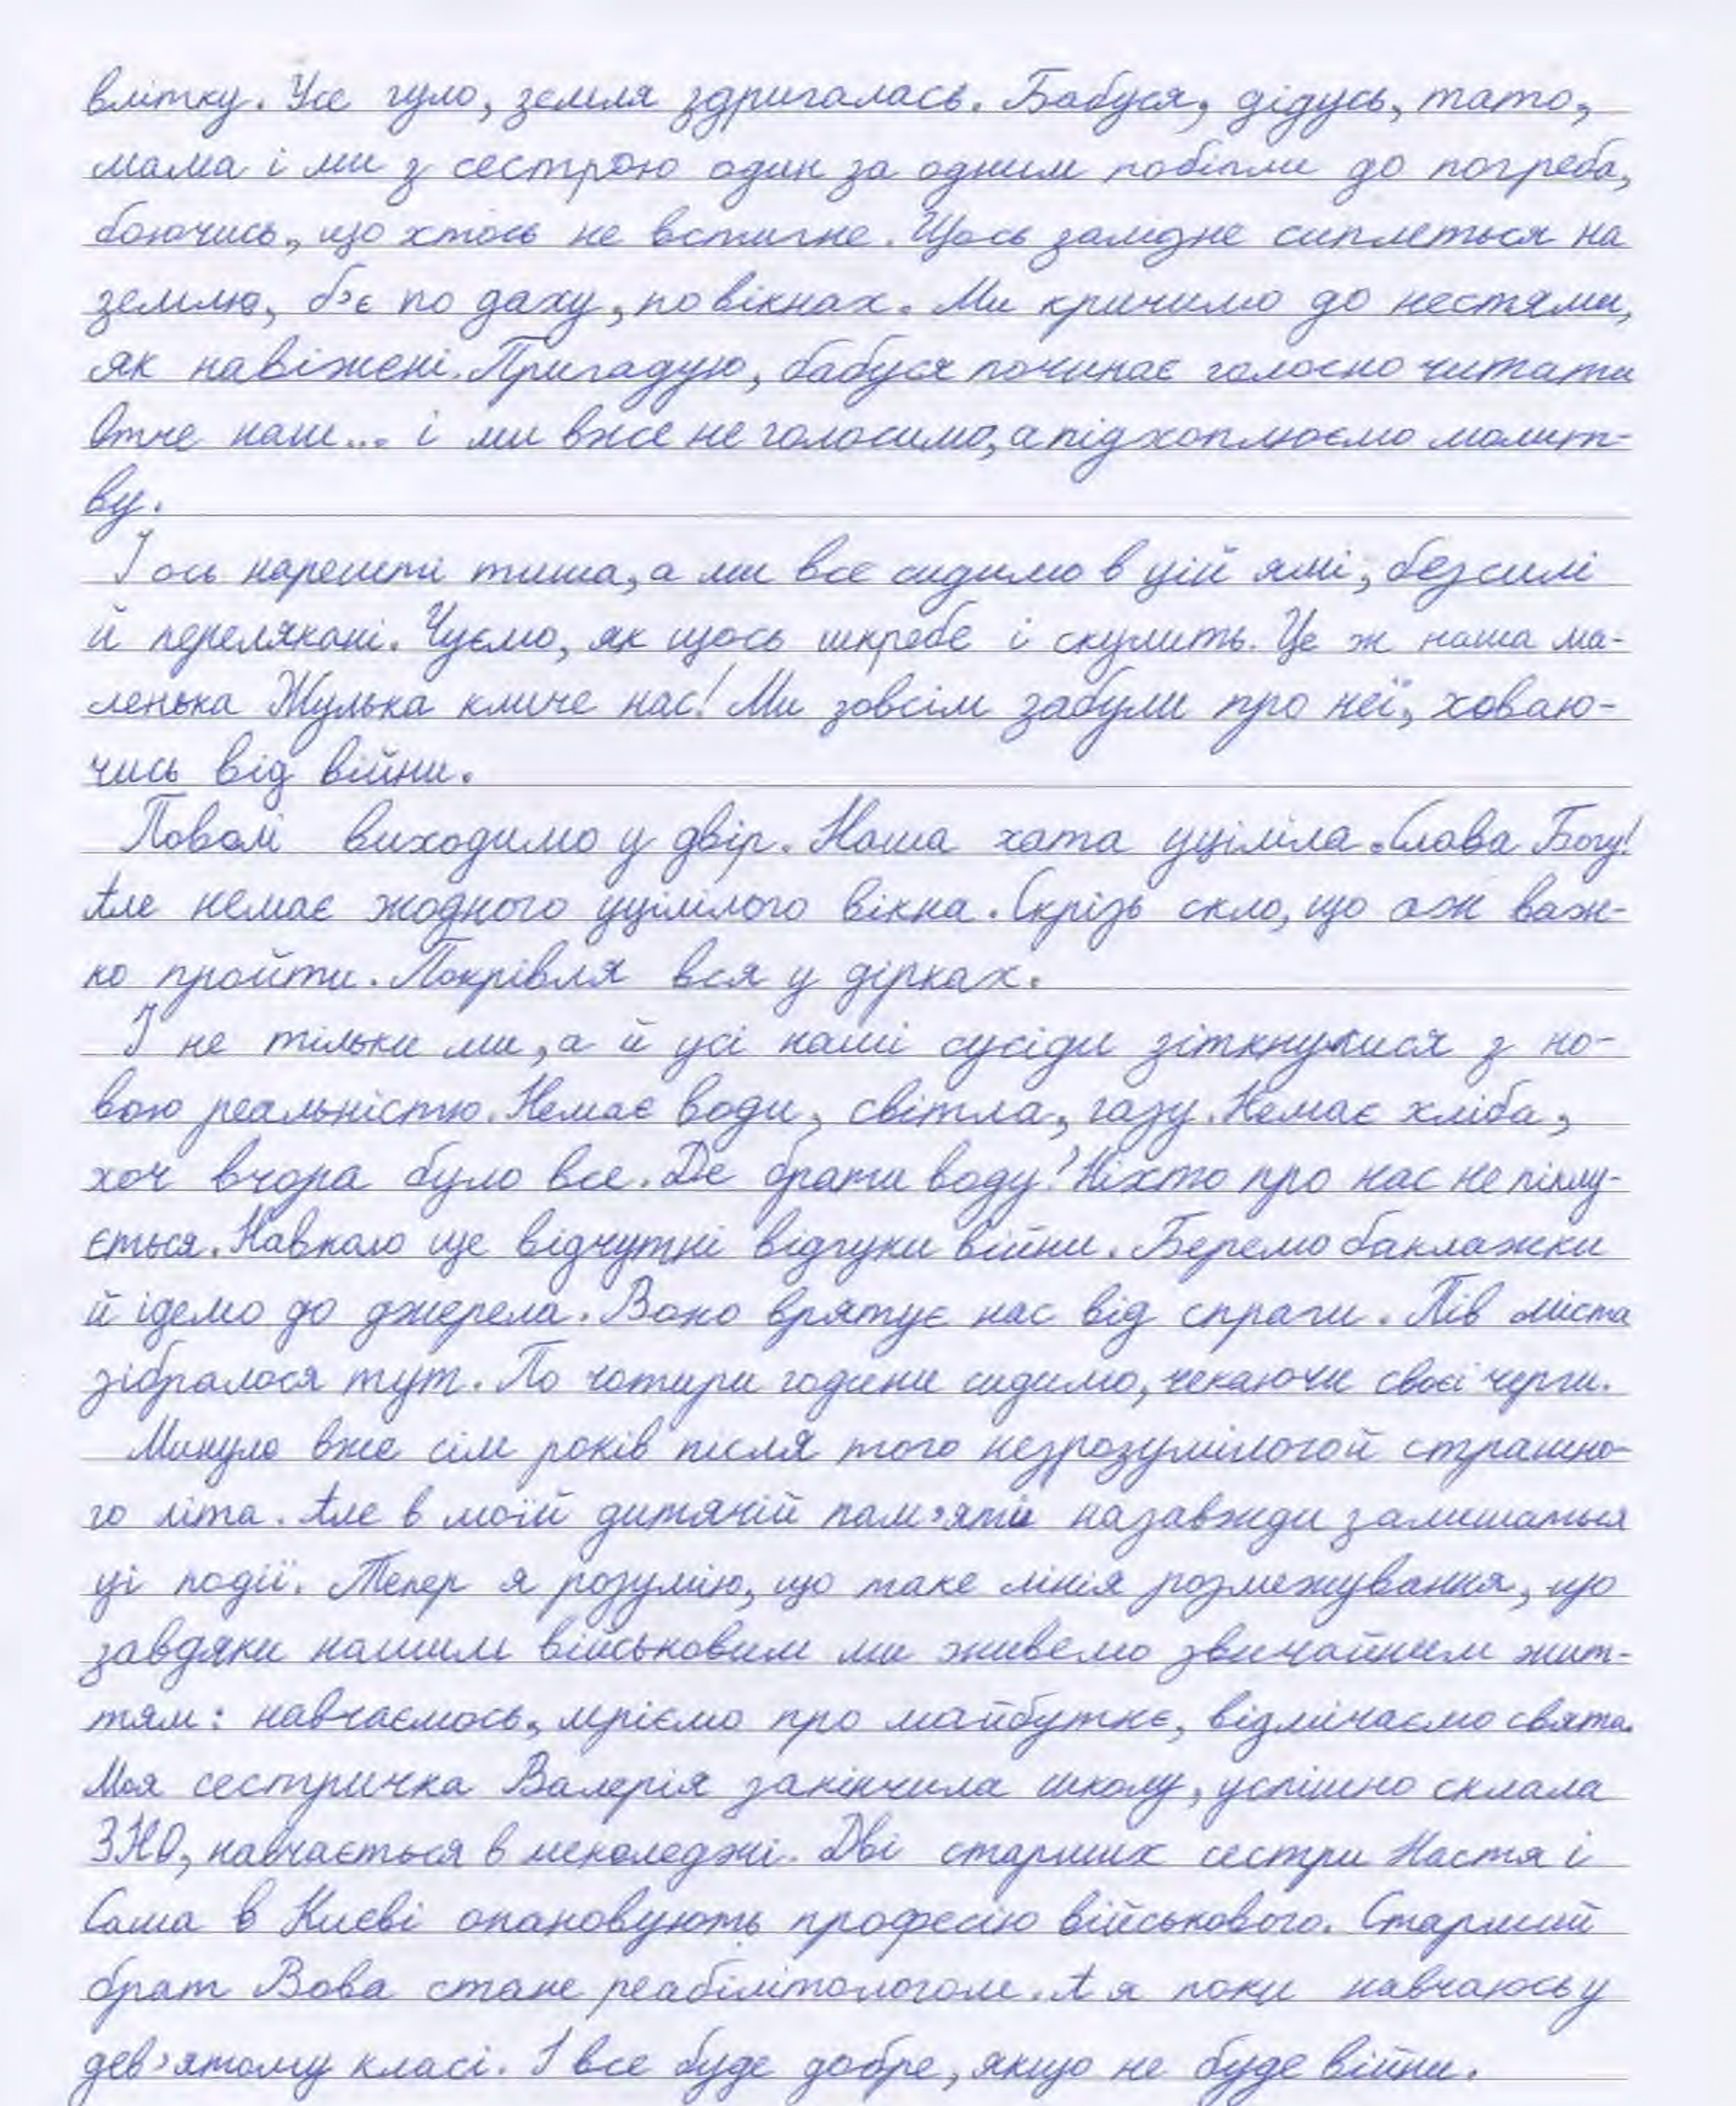 влітку. Усе гуло, земля здригалась. Бабуся, дідусь, тато,
мама і ми з сестрою один за одним побігли до погреба,
боючись, що хтось не встигне. Щось залізне сиплеться на
землю, б'є по даху, по вікнах. Ми кричимо до нестями,
як навіжені. Пригадую, бабуся починає голосно читати
Отче наш... і ми вже не голосимо, а підхоплюємо молит-
ву.
І ось нарешті тиша, а ми все сидимо в цій ямі, безсилі
й перелякані. Чуємо, як щось шкребе і скулить. Це ж наша ма-
ленька Жулька кличе нас! Ми зовсім забули про неї, ховаю-
чись від війни.
Поволі виходимо у двір. Наша хата уціліла. Слава Богу!
Але немає жодного уцілілого вікна. Скрізь скло, що аж важ-
ко пройти. Покрівля вся у дірках.
І не тільки ми, а й усі наші сусіди зіткнулися з но-
вою реальністю. Немає води, світла, газу. Немає хліба,
хоч вчора було все. Де брати воду? Ніхто про нас не піклу-
ється. Навколо ще відчутні відгуки війни. Беремо баклажки
й ідемо до джерела. Воно врятує нас від спраги. Пів міста
зібралося тут. По чотири години сидимо, чекаючи своєї черги.
Минуло вже сім років після того незрозумілого й страшно-
го літа. Але в моїй дитячій пам'яті назавжди залишаться
ці події. Тепер я розумію, що таке лінія розмежування, що
завдяки нашим військовим ми живемо звичайним жит-
тям: навчаємось, мріємо про майбутнє, відмічаємо свята.
Моя сестричка Валерія закінчила школу, успішно склала
ЗНО, навчається в меколеджі. Дві старших сестри Настя і
Саша в Києві опановують професію військового. Старший
брат Вова стане реабілітологом. А я поки навчаюсь у
дев'ятому класі. І все буде добре, якщо не буде війни.